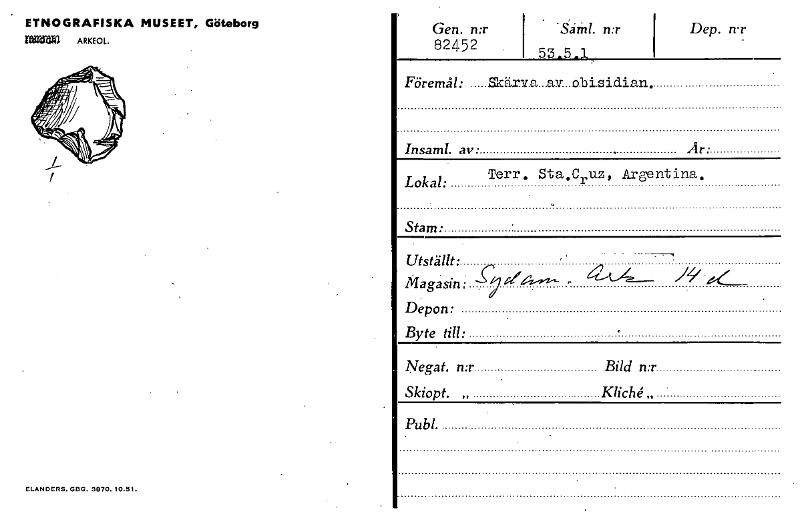 ETNOGRAFISKA MUSEET, Göteborg
ARKEOL.
1/1
ELANDERS, GBG. 3870. 10.51.
Gen. n:r Saml. n:r Dep. n:r
82452 53.5.1
Föremål: Skärva av obisidian.
Insaml. av: År:
Lokal: Terr. Sta.Cruz, Argentina.
Stam:
Utställt:
Magasin: Sydam. Ark 14 d
Depon:
Byte till:
Negat. n:r Bild n:r
Skiopt. „ Kliché „
Publ.